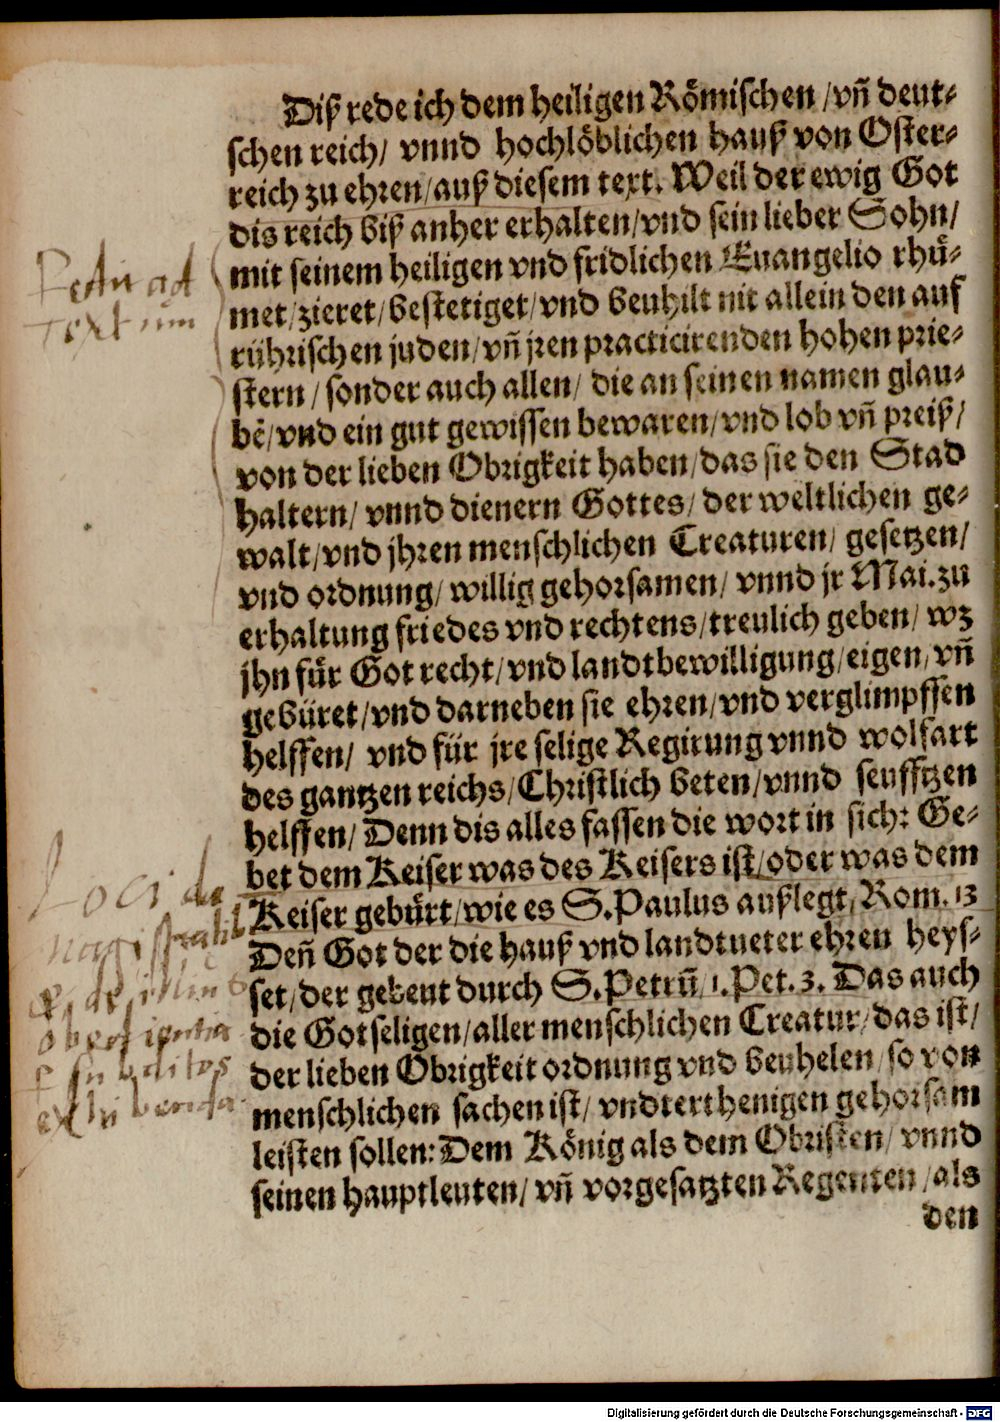 Diß rede ich dem heiligen Römischen / vñ deut⸗
schen reich / vnnd hochlöblichen hauß von Oster⸗
reich zu ehren / auß diesem text. Weil der ewig Got
dis reich biß anher erhalten / vnd sein lieber Sohn /
mit seinem heiligen vnd fridlichen Euangelio rhuͤ⸗
met / zieret / bestetiget / vnd beuhilt nit allein den auf
rührischen juden / vñ jren practicirenden hohen prie⸗
stern / sonder auch allen / die an seinen namen glau⸗
bẽ / vnd ein gut gewissen bewaren / vnd lob vñ preiß /
von der lieben Obrigkeit haben / das sie den Stad
haltern / vnnd dienern Gottes / der weltlichen ge⸗
walt / vnd jhren menschlichen Creaturen / gesetzen /
vnd ordnung / willig gehorsamen / vnnd jr Mai. zu
erhaltung friedes vnd rechtens / treulich geben / wz
jhn für Got recht / vnd landtbewilligung / eigen / vñ
gebüret / vnd darneben sie ehren / vnd verglimpffen
helffen / vnd für jre selige Regirung vnnd wolfart
des gantzen reichs / Christlich beten / vnnd seufftzen
helffen / Denn dis alles fassen die wort in sich: Ge⸗
bet dem Keiser was des Keisers ist / oder was dem
Keiser gebürt / wie es S. Paulus außlegt / Rom. 13
Deñ Got der die hauß vnd landtueter ehren heys⸗
set / der gebeut durch S. Petrũ / 1. Pet. 3. Das auch
die Gotseligen / aller menschlichen Creatur / das ist /
der lieben Obrigkeit ordnung vnd beuhelen / so von
menschlichen sachen ist / vndterthenigen gehorsam
leisten sollen: Dem König als dem Obristen / vnnd
seinen hauptleuten / vñ vorgesatzten Regenten / als
den
ad
Textum
Loci de
obedientia
subditos
exhibenda
Digitalisierung gefördert durch die Deutsche Forschungsgemeinschaft - DFG